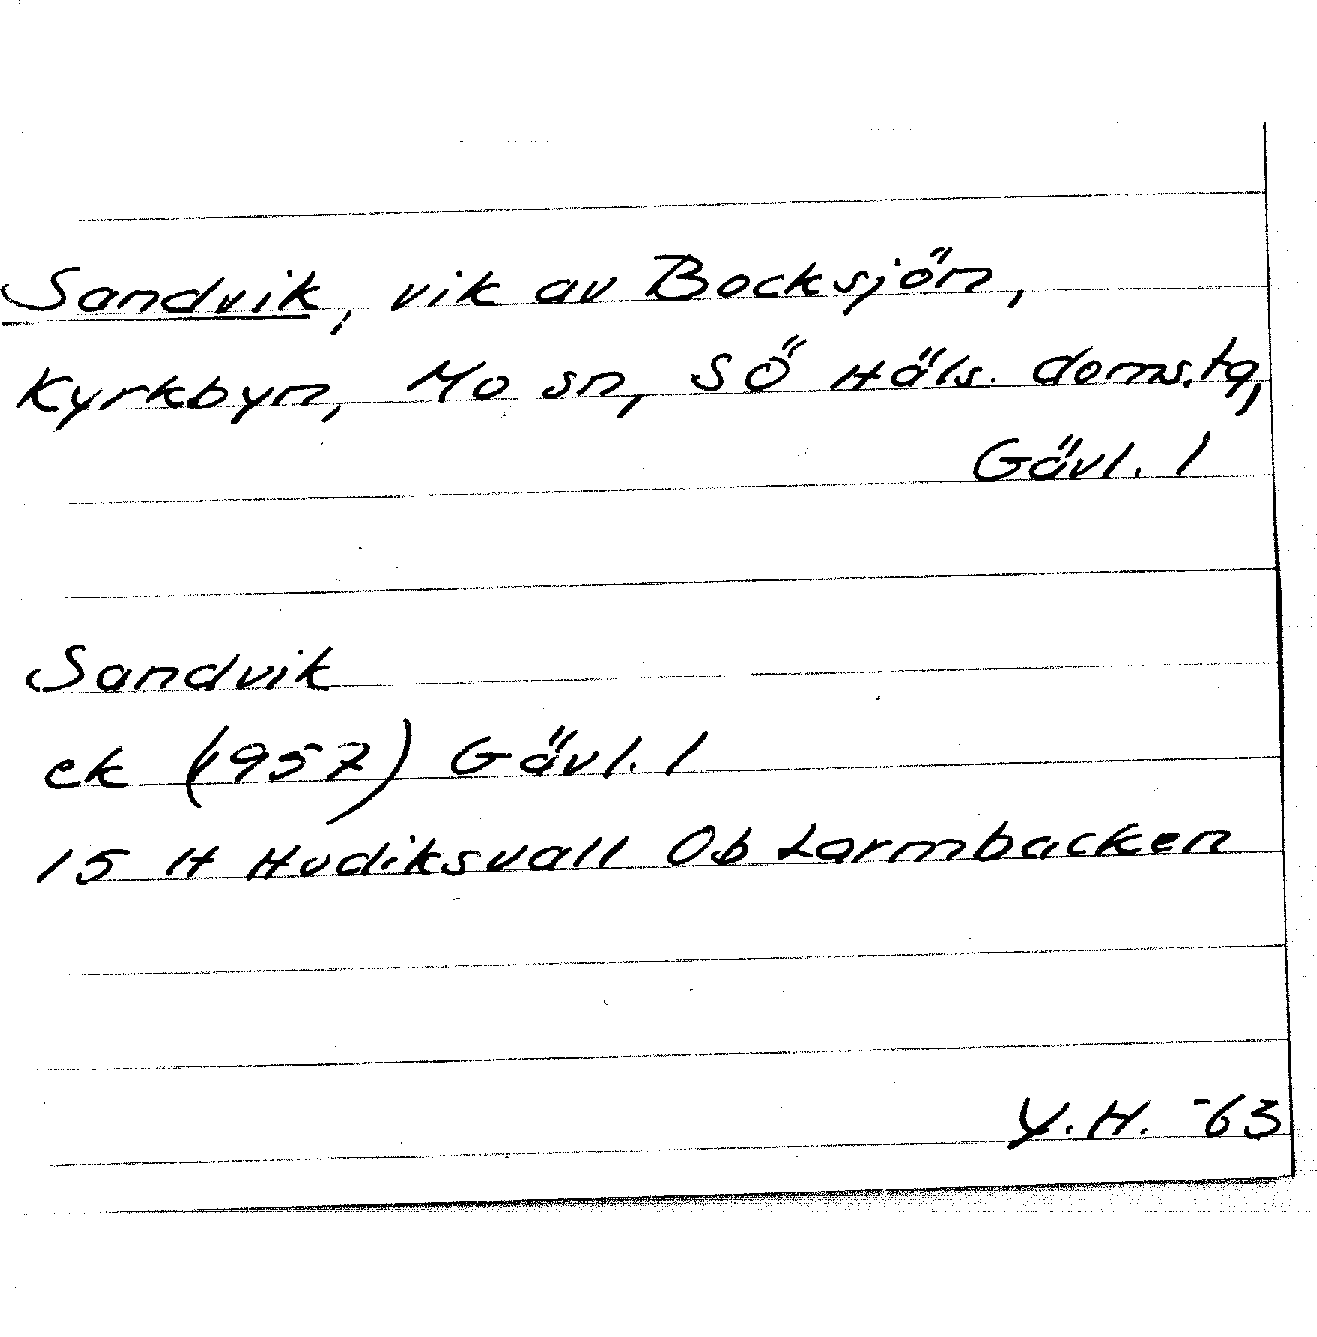 Sandvik, vik av Bocksjön,
Kyrkbyn, Mo sn, SÖ Häls. doms.tg,
Gävl. l
Sandvik
ek (1957) Gävl. l
15 H Hudiksvall Ob Larmbacken
Y.H. -63